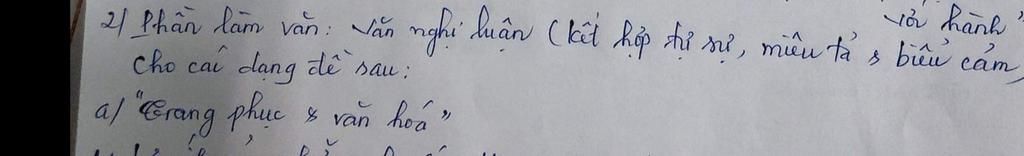 2/ Phần làm văn: Văn nghị luận (kết hợp tự sự, miêu tả & biểu cảm,
với hành
Cho các dạng đề sau:
a/ "Trang phục & văn hoá"